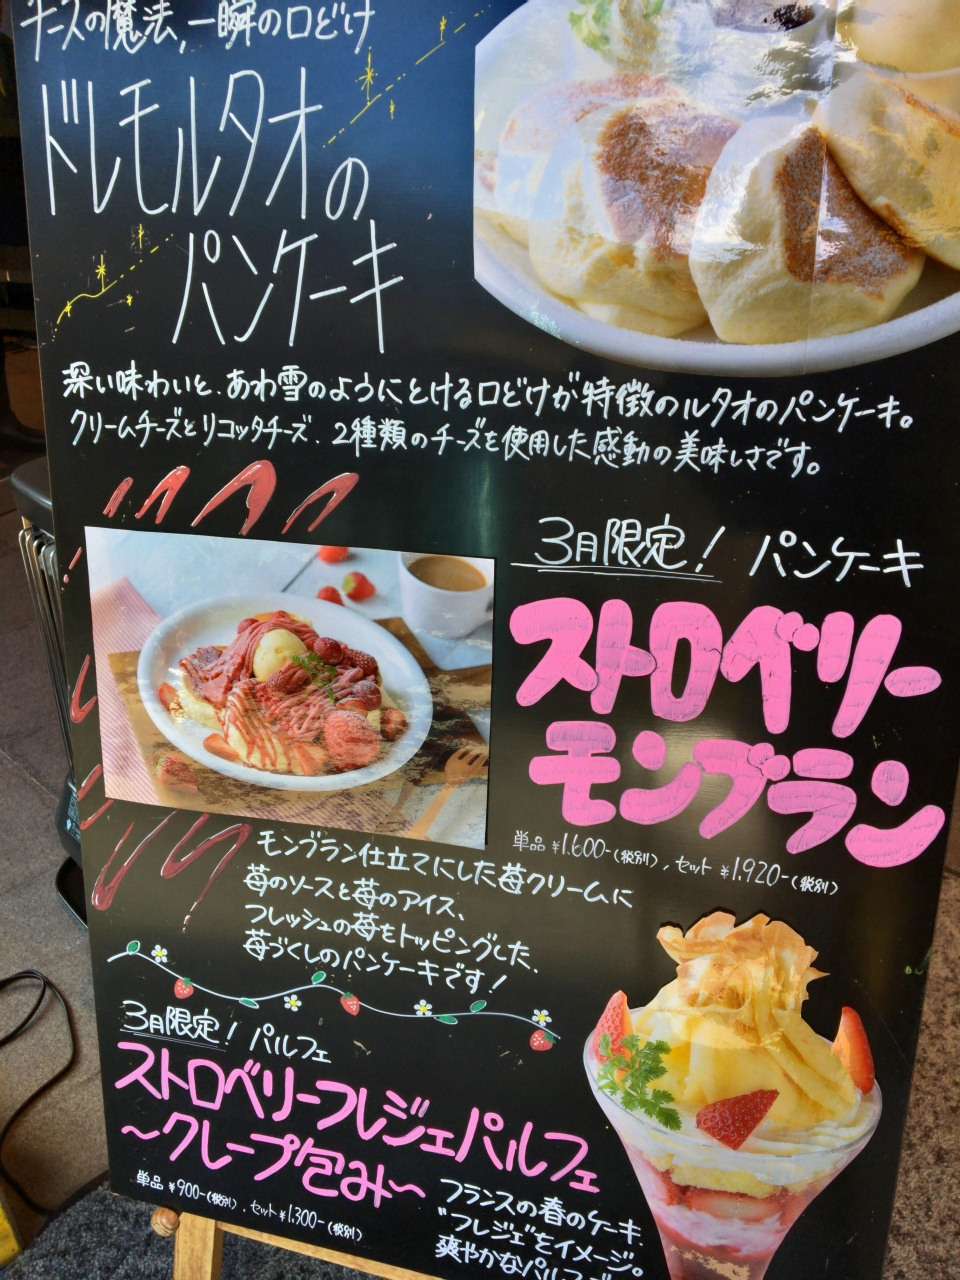 チーズの魔法、一瞬の口どけ
ドレモルタオの
パンケーキ
深い味わいと、あわ雪のようにとける口どけが特徴のルタオのパンケーキ。
クリームチーズとリコッタチーズ、2種類のチーズを使用した感動の美味しさです。
3月限定！ パンケーキ
ストロベリー
モンブラン
単品 ¥1.600-(税別)、セット ¥1.920-(税別)
モンブラン仕立てにした苺クリームに
苺のソースと苺のアイス、
フレッシュの苺をトッピングした、
苺づくしのパンケーキです！
3月限定！ パルフェ
ストロベリーフレジェパルフェ
〜クレープ包み〜
単品 ¥900-(税別)、セット ¥1.300-(税別)
フランスの春のケーキ、
"フレジェ"をイメージ。
爽やかなパルフェ